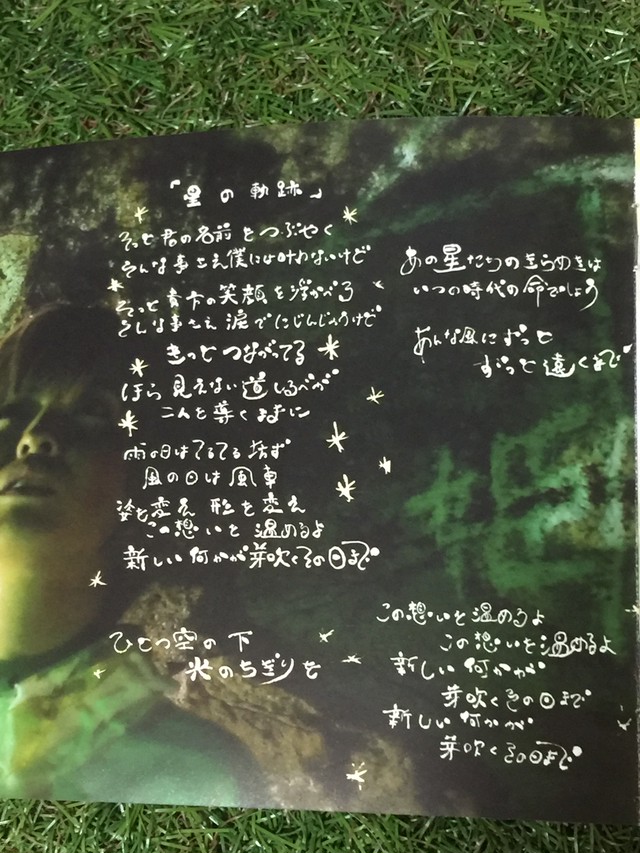 「星の軌跡」
そっと君の名前をつぶやく
そんな事さえ僕には叶わないけど
そっと貴方の笑顔を浮かべる
そんな事さえ涙でにじんじゃうけど
きっとつながってる
ほら見えない道しるべが
二人を導くままに
雨の日はてるてる坊ず
風の日は風車
姿を変え 形を変え
この想いを温めるよ
新しい何かが芽吹くその日まで
ひとつ空の下
光のちぎりを
あの星たちのきらめきは
いつの時代の命でしょう
あんな風にずっと
ずっと遠くまで
この想いを温めるよ
この想いを温めるよ
新しい何かが
芽吹くその日まで
新しい何かが
芽吹くその日まで